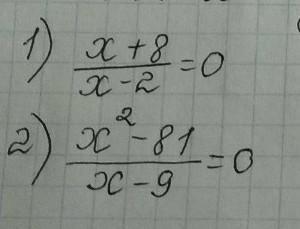 1) (x + 8)/(x - 2) = 0
2) (x² - 81)/(x - 9) = 0